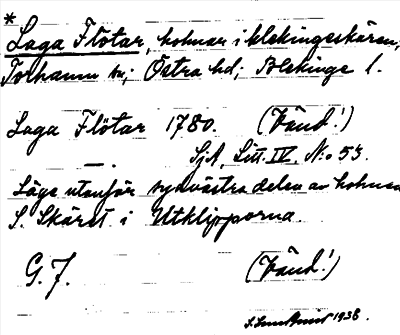 *
Laga Flötar, holmar i blekingeskären,
Torhamn sn; Östra hd; Blekinge l.
Laga Flötar 1780. (Vänd!)
— SjA, Litt. IV, No 53.
Läge utanför sydvästra delen av holmen
S. Skäret i Utklipporna.
G. F. (Vänd!)
1938